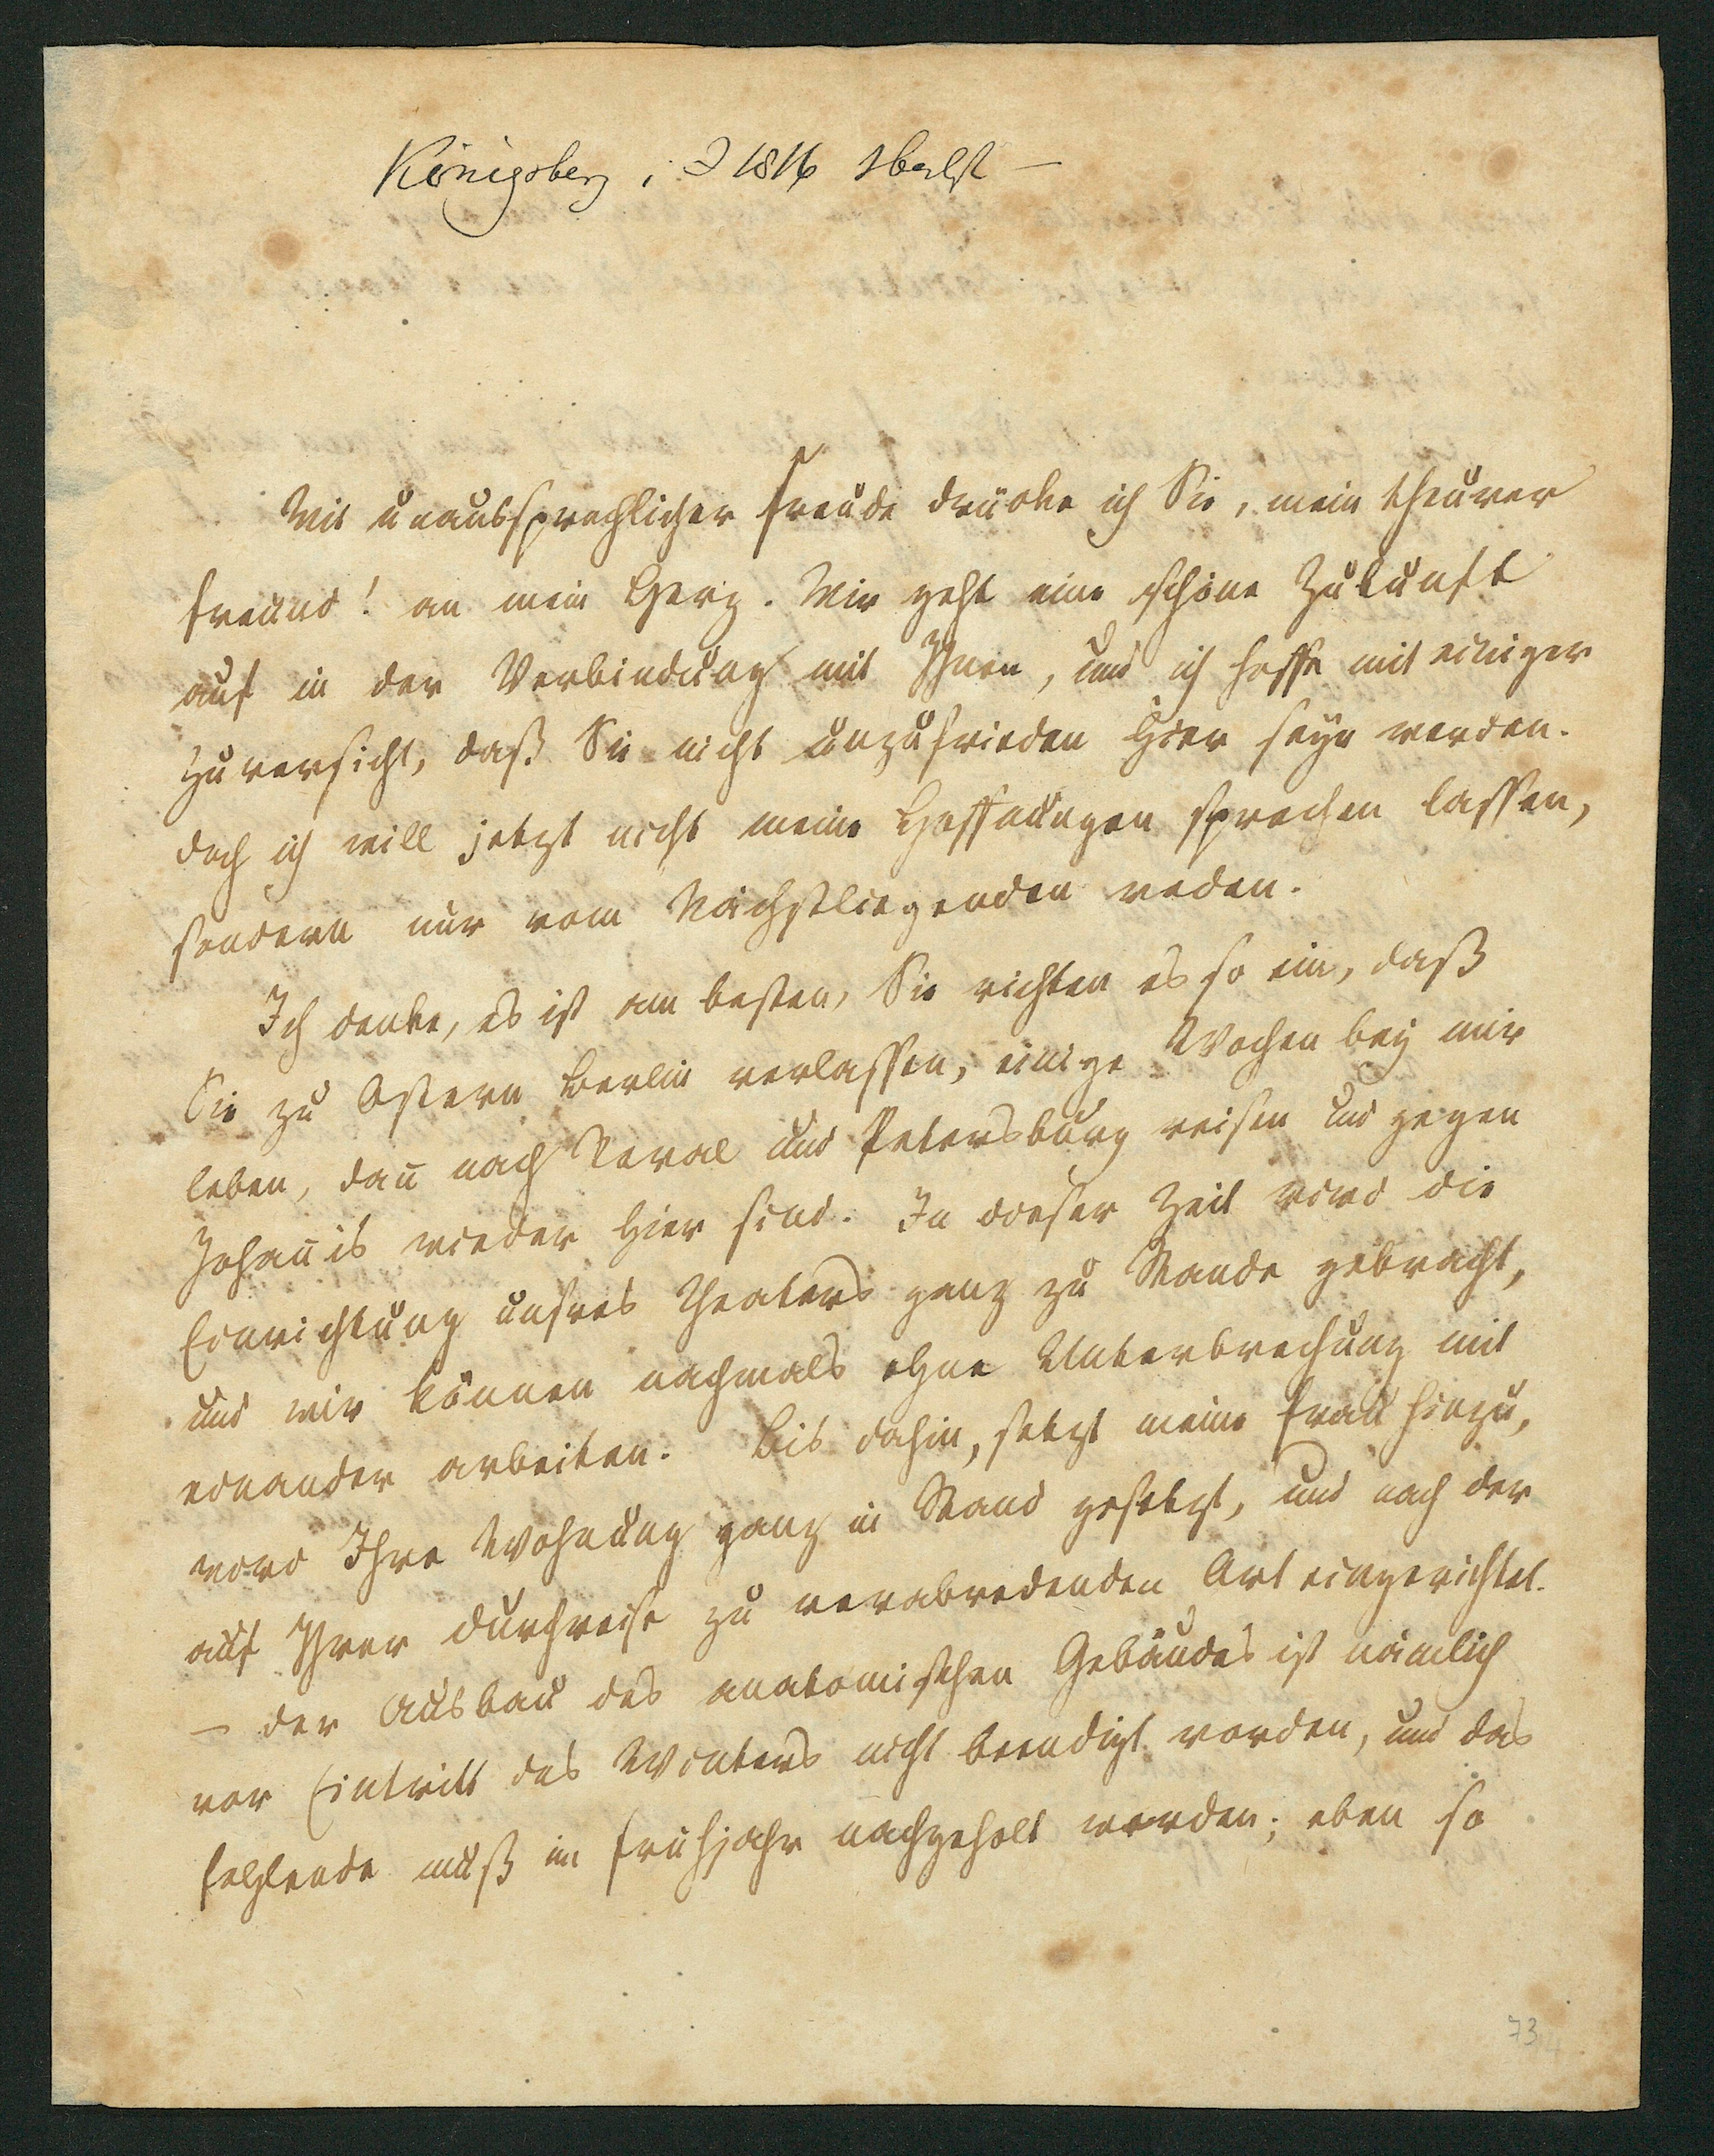 Königsberg, i. J 1816 Herbst –
Mit unaussprechlicher Freude drücke ich Sie, mein theurer
Freund! an mein Herz. Mir geht eine schöne Zukunft
auf in der Verbindung mit Ihnen, und ich hoffe mit einiger
Zuversicht, daß Sie nicht unzufrieden hier seyn werden.
Doch ich will jetzt nicht meine Hoffnungen sprechen lassen,
sondern nur vom Nächstliegenden reden.
Ich denke, es ist am besten, Sie richten es so ein, daß
Sie zu Ostern Berlin verlassen, einige Wochen bey mir
leben, dan̄ nach Reval und Petersburg reisen und gegen
Johan̄is wieder hier sind. In dieser Zeit wird die
Einrichtung unsres Theaters ganz zu Stande gebracht,
und wir können nachmals ohne Unterbrechung mit
einander arbeiten. Bis dahin, setzt meine Frau hinzu,
wird Ihre Wohnung ganz in Stand gesetzt, und nach der
auf Ihrer Durchreise zu verabredenden Art eingerichtet.
– Der Ausbau des anatomischen Gebäudes ist nämlich
vor Eintritt des Winters nicht beendigt worden, und das
Fehlende muß im Frühjahr nachgeholt werden; eben so
73